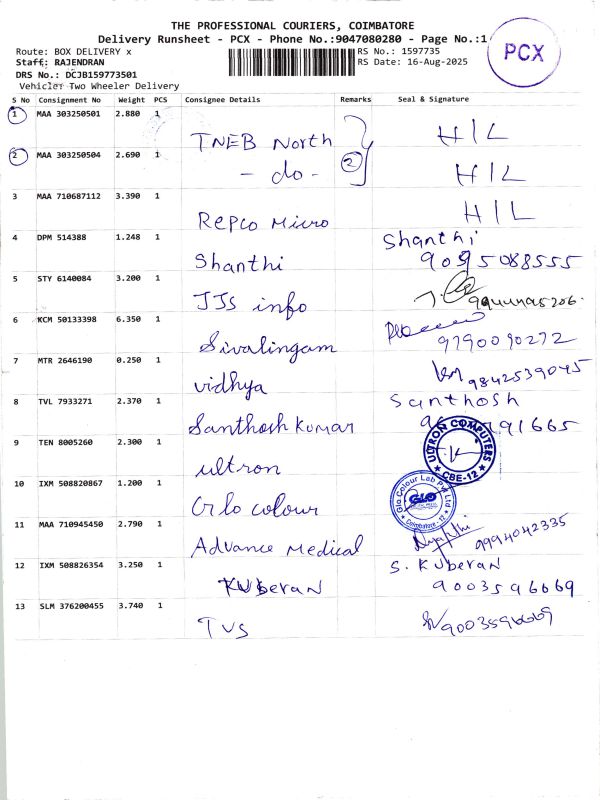 THE PROFESSIONAL COURIERS, COIMBATORE
Delivery Runsheet - PCX - Phone No.:9047080280 - Page No.:1
Route: BOX DELIVERY x
RS No.: 1597735
Staff: RAJENDRAN
RS Date: 16-Aug-2025
DRS No.: DCJB159773501
Vehicle: Two Wheeler Delivery
PCX
S No Consignment No Weight PCS Consignee Details Remarks Seal & Signature
1 MAA 303250501 2.880 1 TNEB North H/L
2 MAA 303250504 2.690 1 - do - 2 H/L
3 MAA 710687112 3.390 1 Repco Micro H/L
4 DPM 514388 1.248 1 Shanthi Shanthi
9095088555
5 STY 6140084 3.200 1 JJs info
6 KCM 50133398 6.350 1 Sivalingam
9790090272
7 MTR 2646190 0.250 1 vidhya 9842539045
8 TVL 7933271 2.370 1 Santhosh Kumar Santhosh
91665
9 TEN 8005260 2.300 1 ultron
ULTRON COMPUTERS
CBE-12
10 IXM 508820867 1.200 1 Glo colour
Glo Colour Lab Pvt Ltd
GLO
Coimbatore - 12
11 MAA 710945450 2.790 1 Advance Medical 9994042335
12 IXM 508826354 3.250 1 Kuberan S. Kuberan
9003596669
13 SLM 376200455 3.740 1 TVS 9003596669